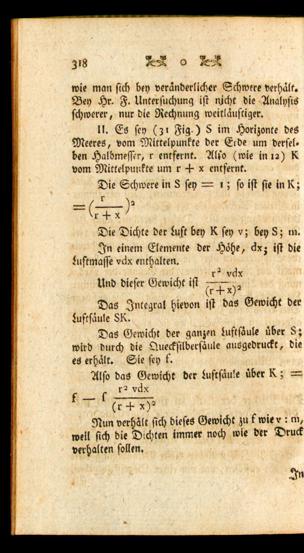 318 o
wie man sich bey veränderlicher Schwere verhält.
Bey Hr. F. Untersuchung ist nicht die Analysis
schwerer, nur die Rechnung weitläuftiger.
II. Es sey (31 Fig.) S im Horizonte des
Meeres, vom Mittelpunkte der Erde um dessel-
ben Halbmesser, r entfernt. Also (wie in 12) K
vom Mittelpunkte um r + x entfernt.
Die Schwere in S sey = 1; so ist sie in K;
= (r / (r + x))²
Die Dichte der Luft bey K sey v; bey S; m.
In einem Elemente der Höhe, dx; ist die
Luftmasse vdx enthalten.
Und dieser Gewicht ist r² vdx / (r+x)²
Das Integral hievon ist das Gewicht der
Luftsäule SK.
Das Gewicht der ganzen Luftsäule über S;
wird durch die Quecksilbersäule ausgedruckt, die
es erhält. Sie sey f.
Also das Gewicht der Luftsäule über K; =
f — ſ r² vdx / (r + x)²
Nun verhält sich dieses Gewicht zu f wie v : m,
weil sich die Dichten immer noch wie der Druck
verhalten sollen.
In